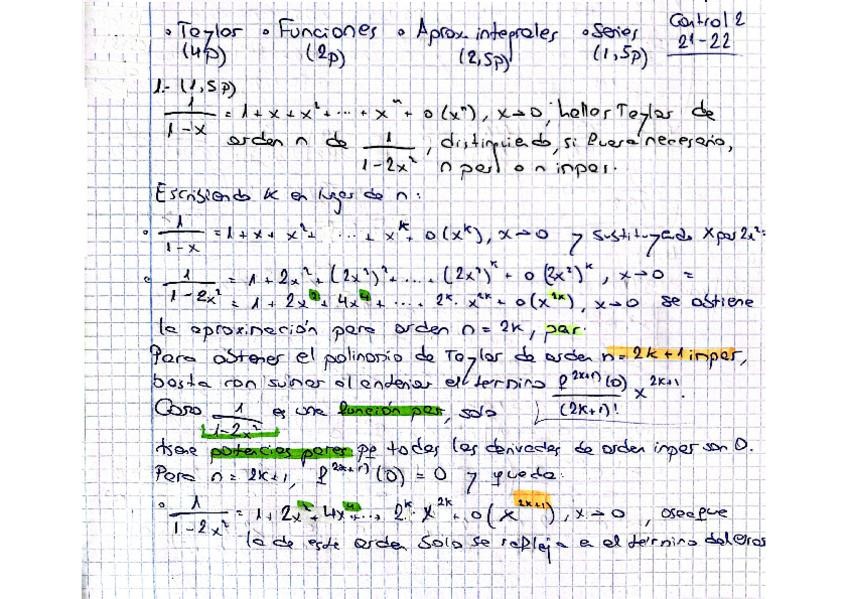 • Taylor • Funciones • Aprox. integrales • Series Control 2
(4p) (2p) (2,5p) (1,5p) 21-22
1.- (1,5p)
1/(1-x) = 1 + x + x² + ... + xⁿ + o(xⁿ), x→0, hallar Taylor de
orden n de 1/(1-2x²), distinguiendo, si fuera necesario,
n par o n impar.
Escribiendo k en lugar de n:
• 1/(1-x) = 1 + x + x² + ... + xᵏ + o(xᵏ), x→0 y sustituyendo x por 2x²:
• 1/(1-2x²) = 1 + 2x² + (2x²)² + .... (2x²)ᵏ + o(2x²)ᵏ, x→0 =
= 1 + 2x² + 4x⁴ + ... 2ᵏ · x²ᵏ + o(x²ᵏ), x→0 se obtiene
la aproximación para orden n = 2k, par.
Para obtener el polinomio de Taylor de orden n = 2k+1 impar,
basta con sumar al anterior el termino f^(2k+1)(0)/(2k+1)! x^(2k+1).
Como 1/(1-2x²) es una función par, solo
tiene potencias pares pq todas las derivadas de orden impar son 0.
Para n = 2k+1, f^(2k+1)(0) = 0 y queda:
• 1/(1-2x²) = 1 + 2x² + 4x⁴ + ... 2ᵏ · x²ᵏ + o(x^(2k+1)), x→0, osea que
la de este orden solo se refleja en el término del error